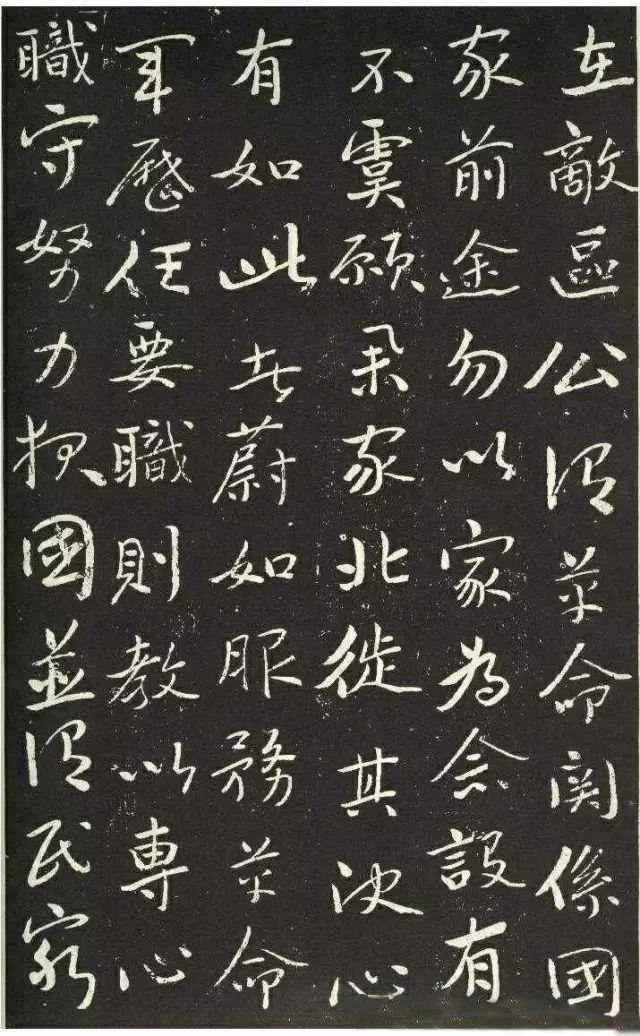 在敵區公謂革命関係國
家前途勿以家為念設有
不虞願舉家北徙其決心
有如此者蔚如服務革命
軍歷任要職則教以專心
職守努力報國並謂民窮